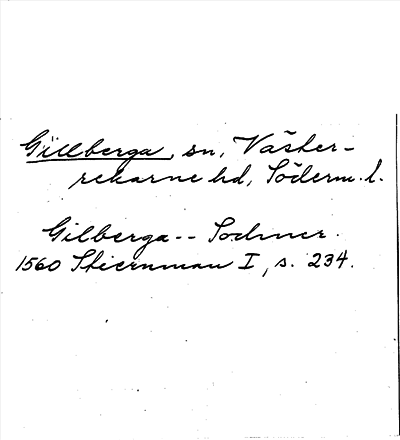 Gillberga, sn, Väster-
rekarne hd, Söderm. l.
Gilberga -- Sochner.
1560 Stiernman I, s. 234.